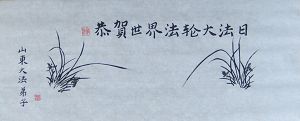 恭賀世界法轮大法日
山東大法弟子